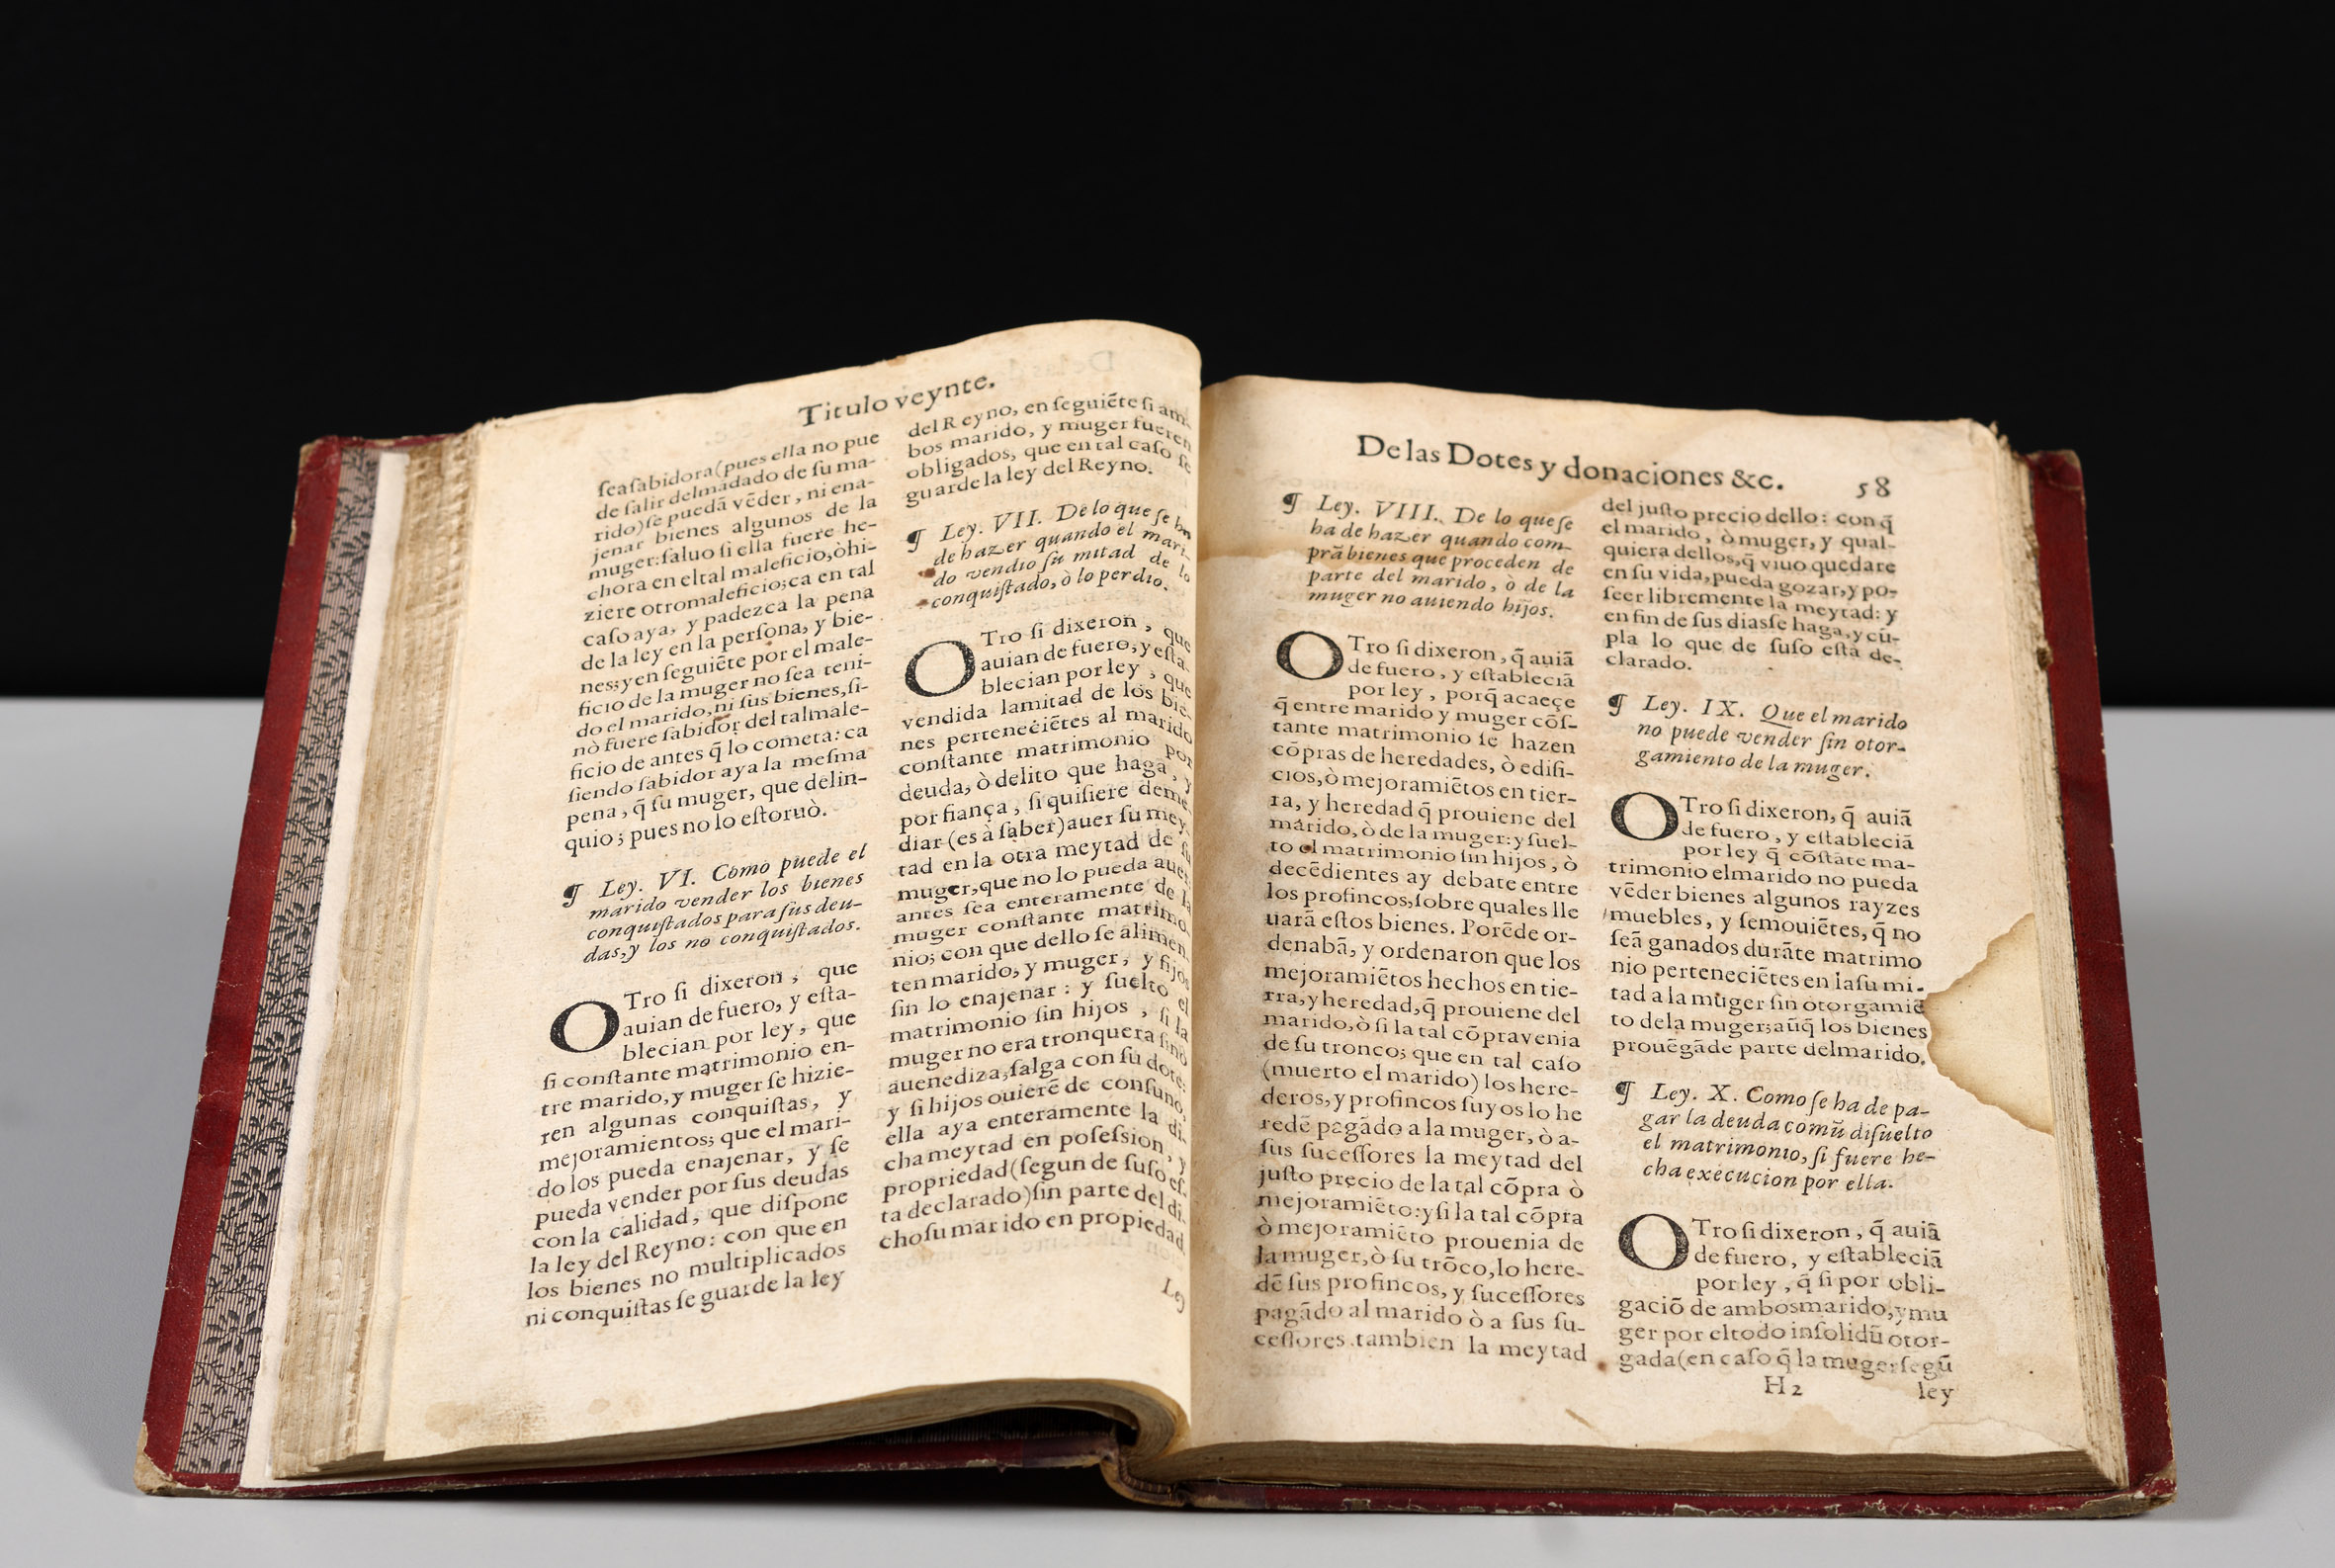 Titulo veynte.
ſeaſabidora(pues ella no pue
de ſalir delmãdado de ſu ma-
rido)ſe puedã vẽder, ni ena-
jenar bienes algunos de la
muger:ſaluo ſi ella fuere he-
chora en eltal maleficio,òhi-
ziere otromaleficio;ca en tal
caſo aya, y padezca la pena
de la ley en la perſona, y bie-
nes;y en ſeguiẽte por el male-
ficio de la muger no ſea teni-
do el marido,ni ſus bienes,ſi-
nò fuere ſabidor del talmale-
ficio de antes q̃ lo cometa: ca
ſiendo ſabidor aya la meſma
pena, q̃ ſu muger, que delin-
quio; pues no lo eſtoruò.
¶ Ley. VI. Como puede el
marido vender los bienes
conquiſtados para ſus deu-
das,y los no conquiſtados.
OTro ſi dixeron, que
auian de fuero, y eſta-
blecian por ley, que
ſi conſtante matrimonio en-
tre marido,y muger ſe hizie-
ren algunas conquiſtas, y
mejoramientos; que el mari-
do los pueda enajenar, y ſe
pueda vender por ſus deudas
con la calidad, que diſpone
la ley del Reyno: con que en
los bienes no multiplicados
ni conquiſtas ſe guarde la ley
del Reyno, en ſeguiẽte ſi am-
bos marido, y muger fueren
obligados, que en tal caſo ſe
guarde la ley del Reyno.
¶ Ley. VII. De lo que ſe ha
de hazer quando el mari-
do vendio ſu mitad de lo
conquiſtado, ò lo perdio.
OTro ſi dixeron, que
auian de fuero, y eſta-
blecian por ley, que
vendida lamitad de los bie-
nes perteneciẽtes al marido
conſtante matrimonio por
deuda, ò delito que haga, y
por fiança, ſi quiſiere deme-
diar (es à ſaber)auer ſu mey-
tad en la otra meytad de ſu
muger,que no lo pueda auer
antes ſea enteramente de la
muger conſtante matrimo-
nio; con que dello ſe alimen-
ten marido, y muger, y fijos
ſin lo enajenar: y ſuelto el
matrimonio ſin hijos, ſi la
muger no era tronquera ſinò
auenediza,ſalga con ſu dote:
y ſi hijos ouierẽ de conſuno,
ella aya enteramente la di-
cha meytad en poſeſsion, y
propriedad(ſegun de ſuſo eſ-
ta declarado)ſin parte del di-
choſu marido en propiedad
De las Dotes y donaciones &c. 58
¶ Ley. VIII. De lo que ſe
ha de hazer quando com-
prã bienes que proceden de
parte del marido, ò de la
muger no auiendo hijos.
OTro ſi dixeron, q̃ auiã
de fuero, y eſtableciã
por ley, porq̃ acaeçe
q̃ entre marido y muger cõſ-
tante matrimonio ſe hazen
cõpras de heredades, ò edifi-
cios,ò mejoramiẽtos en tier-
ra, y heredad q̃ prouiene del
marido, ò de la muger:y ſuel-
to el matrimonio ſin hijos, ò
decẽdientes ay debate entre
los profincos,ſobre quales lle
uarã eſtos bienes. Porẽde or-
denabã, y ordenaron que los
mejoramiẽtos hechos en tie-
rra,y heredad,q̃ prouiene del
marido,ò ſi la tal cõpravenia
de ſu tronco; que en tal caſo
(muerto el marido) los here-
deros,y profincos ſuyos lo he
redẽ pagãdo a la muger, ò a-
ſus ſuceſſores la meytad del
juſto precio de la tal cõpra ò
mejoramiẽto:y ſi la tal cõpra
ò mejoramiẽto prouenia de
la muger,ò ſu trõco,lo here-
dẽ ſus profincos, y ſuceſſores
pagãdo al marido ò a ſus ſu-
ceſſores tambien la meytad
del juſto precio dello: con q̃
el marido, ò muger, y qual-
quiera dellos,q̃ viuo quedare
en ſu vida,pueda gozar,y po-
ſeer libremente la meytad: y
en fin de ſus diasſe haga,y cũ-
pla lo que de ſuſo eſtà de-
clarado.
¶ Ley. IX. Que el marido
no puede vender ſin otor-
gamiento de la muger.
OTro ſi dixeron, q̃ auiã
de fuero, y eſtableciã
por ley q̃ cõſtãte ma-
trimonio elmarido no pueda
vẽder bienes algunos rayzes
muebles, y ſemouiẽtes, q̃ no
ſeã ganados durãte matrimo
nio perteneciẽtes en laſu mi-
tad a la muger ſin otorgamiẽ
to dela muger;aũq̃ los bienes
prouẽgãde parte delmarido.
¶ Ley. X. Como ſe ha de pa-
gar la deuda comũ diſuelto
el matrimonio, ſi fuere he-
cha execucion por ella.
OTro ſi dixeron, q̃ auiã
de fuero, y eſtableciã
por ley, q̃ ſi por obli-
gaciõ de ambosmarido,y mu
ger por eltodo inſolidũ otor-
gada(en caſo q̃ la muger ſegũ
H 2 ley